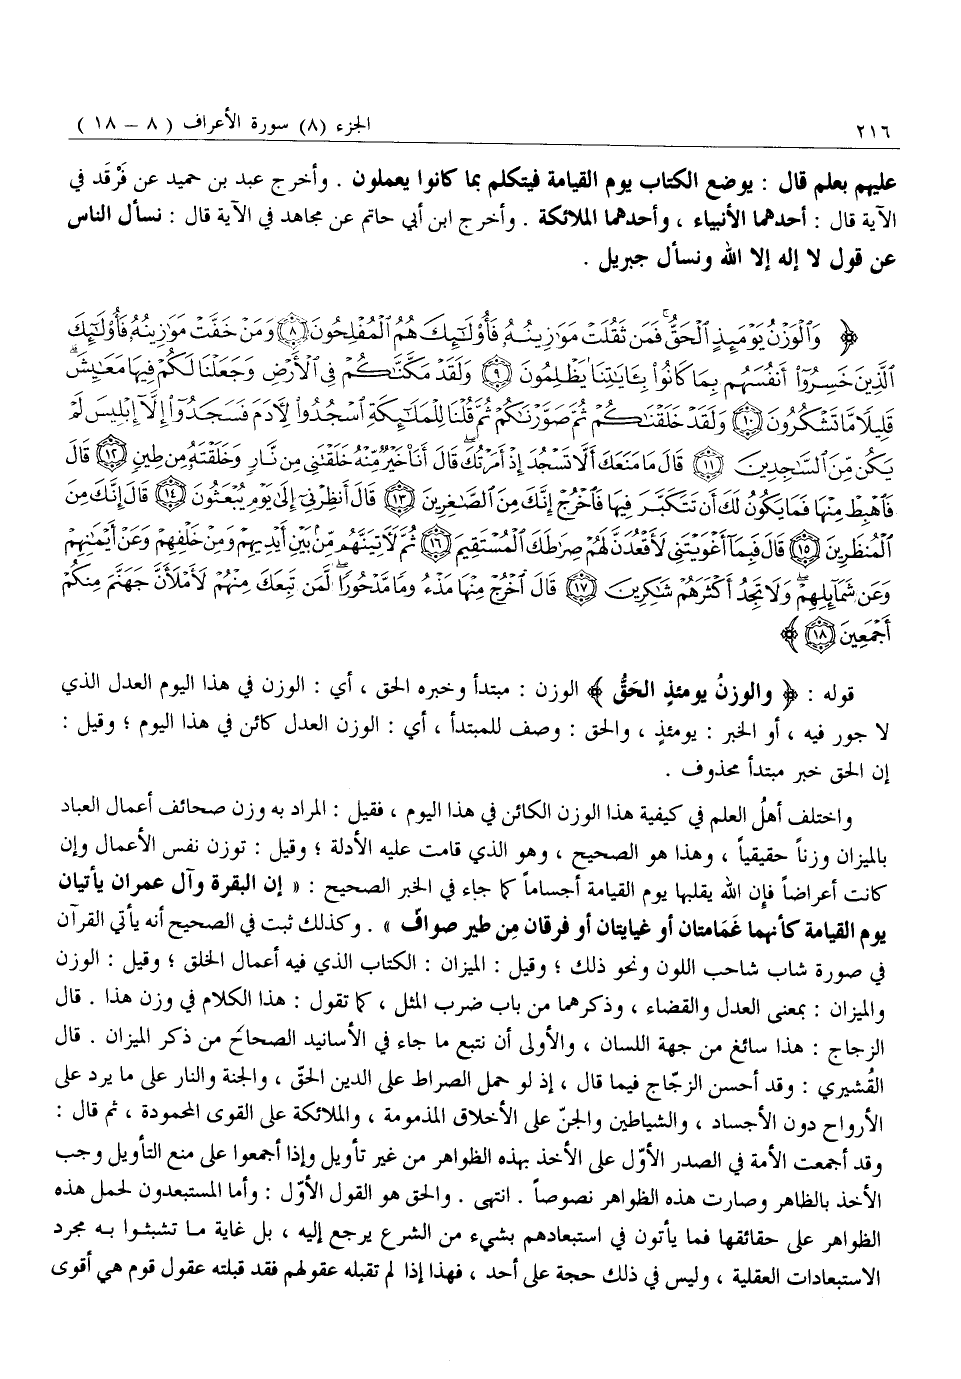 ٢١٦ الجزء (٨) سورة الأعراف ( ٨ – ١٨ )
عليهم بعلم قال : يوضع الكتاب يوم القيامة فيتكلم بما كانوا يعملون . وأخرج عبد بن حميد عن فَرْقَد في
الآية قال : أحدهما الأنبياء ، وأحدهما الملائكة . وأخرج ابن أبي حاتم عن مجاهد في الآية قال : نسأل الناس
عن قول لا إله إلا الله ونسأل جبريل .
﴿ وَٱلْوَزْنُ يَوْمَئِذٍ ٱلْحَقُّ ۚ فَمَن ثَقُلَتْ مَوَٰزِينُهُۥ فَأُو۟لَٰٓئِكَ هُمُ ٱلْمُفْلِحُونَ ٨ وَمَنْ خَفَّتْ مَوَٰزِينُهُۥ فَأُو۟لَٰٓئِكَ
ٱلَّذِينَ خَسِرُوٓا۟ أَنفُسَهُم بِمَا كَانُوا۟ بِـَٔايَٰتِنَا يَظْلِمُونَ ٩ وَلَقَدْ مَكَّنَّٰكُمْ فِى ٱلْأَرْضِ وَجَعَلْنَا لَكُمْ فِيهَا مَعَٰيِشَ ۗ
قَلِيلًا مَّا تَشْكُرُونَ ١٠ وَلَقَدْ خَلَقْنَٰكُمْ ثُمَّ صَوَّرْنَٰكُمْ ثُمَّ قُلْنَا لِلْمَلَٰٓئِكَةِ ٱسْجُدُوا۟ لِـَٔادَمَ فَسَجَدُوٓا۟ إِلَّآ إِبْلِيسَ لَمْ
يَكُن مِّنَ ٱلسَّٰجِدِينَ ١١ قَالَ مَا مَنَعَكَ أَلَّا تَسْجُدَ إِذْ أَمَرْتُكَ ۖ قَالَ أَنَا۠ خَيْرٌ مِّنْهُ خَلَقْتَنِى مِن نَّارٍ وَخَلَقْتَهُۥ مِن طِينٍ ١٢ قَالَ
فَٱهْبِطْ مِنْهَا فَمَا يَكُونُ لَكَ أَن تَتَكَبَّرَ فِيهَا فَٱخْرُجْ إِنَّكَ مِنَ ٱلصَّٰغِرِينَ ١٣ قَالَ أَنظِرْنِىٓ إِلَىٰ يَوْمِ يُبْعَثُونَ ١٤ قَالَ إِنَّكَ مِنَ
ٱلْمُنظَرِينَ ١٥ قَالَ فَبِمَآ أَغْوَيْتَنِى لَأَقْعُدَنَّ لَهُمْ صِرَٰطَكَ ٱلْمُسْتَقِيمَ ١٦ ثُمَّ لَـَٔاتِيَنَّهُم مِّنۢ بَيْنِ أَيْدِيهِمْ وَمِنْ خَلْفِهِمْ وَعَنْ أَيْمَٰنِهِمْ
وَعَن شَمَآئِلِهِمْ ۖ وَلَا تَجِدُ أَكْثَرَهُمْ شَٰكِرِينَ ١٧ قَالَ ٱخْرُجْ مِنْهَا مَذْءُومًا مَّدْحُورًا ۖ لَّمَن تَبِعَكَ مِنْهُمْ لَأَمْلَأَنَّ جَهَنَّمَ مِنكُمْ
أَجْمَعِينَ ١٨ ﴾
قوله : ﴿ والوزنُ يومئذٍ الحَقُّ ﴾ الوزن : مبتدأ وخبره الحق ، أي : الوزن في هذا اليوم العدل الذي
لا جور فيه ، أو الخبر : يومئذٍ ، والحق : وصف للمبتدأ ، أي : الوزن العدل كائن في هذا اليوم ؛ وقيل :
إن الحق خبر مبتدأ محذوف .
واختلف أهلُ العلم في كيفية هذا الوزن الكائن في هذا اليوم ، فقيل : المراد به وزن صحائف أعمال العباد
بالميزان وزناً حقيقياً ، وهذا هو الصحيح ، وهو الذي قامت عليه الأدلة ؛ وقيل : توزن نفس الأعمال وإن
كانت أعراضاً فإن الله يقلبها يوم القيامة أجساماً كما جاء في الخبر الصحيح : « إن البقرة وآل عمران يأتيان
يوم القيامة كأنهما غَمَامتان أو غيايتان أو فرقان مِن طير صوافّ » . وكذلك ثبت في الصحيح أنه يأتي القرآن
في صورة شاب شاحب اللون ونحو ذلك ؛ وقيل : الميزان : الكتاب الذي فيه أعمال الخلق ؛ وقيل : الوزن
والميزان : بمعنى العدل والقضاء ، وذكرهما من باب ضرب المثل ، كما تقول : هذا الكلام في وزن هذا . قال
الزجاج : هذا سائغ من جهة اللسان ، والأولى أن نتبع ما جاء في الأسانيد الصحاح من ذكر الميزان . قال
القُشيري : وقد أحسن الزجّاج فيما قال ، إذ لو حمل الصراط على الدين الحقّ ، والجنة والنار على ما يرد على
الأرواح دون الأجساد ، والشياطين والجنّ على الأخلاق المذمومة ، والملائكة على القوى المحمودة ، ثم قال :
وقد أجمعت الأمة في الصدر الأوّل على الأخذ بهذه الظواهر من غير تأويل وإذا أجمعوا على منع التأويل وجب
الأخذ بالظاهر وصارت هذه الظواهر نصوصاً . انتهى . والحق هو القول الأوّل : وأما المستبعدون لحمل هذه
الظواهر على حقائقها فما يأتون في استبعادهم بشيء من الشرع يرجع إليه ، بل غاية ما تشبثوا به مجرد
الاستبعادات العقلية ، وليس في ذلك حجة على أحد ، فهذا إذا لم تقبله عقولهم فقد قبلته عقول قوم هي أقوى